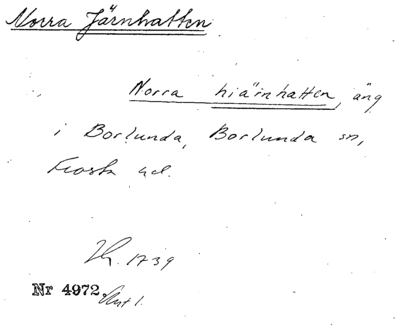 Norra Järnhatten
Norra hiärnhatten, äng
i Borlunda, Borlunda sn,
Frosta hd.
1739
Nr 4972.